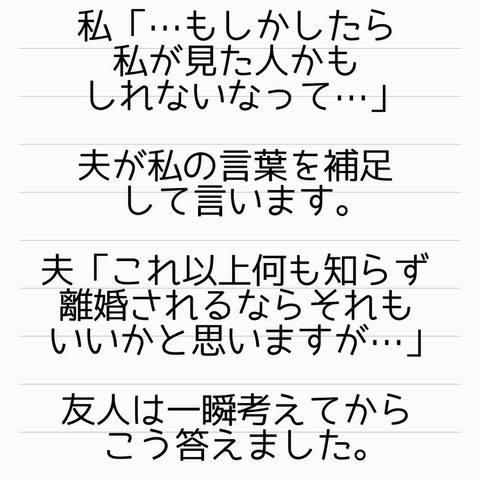 私「…もしかしたら
私が見た人かも
しれないなって…」
夫が私の言葉を補足
して言います。
夫「これ以上何も知らず
離婚されるならそれも
いいかと思いますが…」
友人は一瞬考えてから
こう答えました。